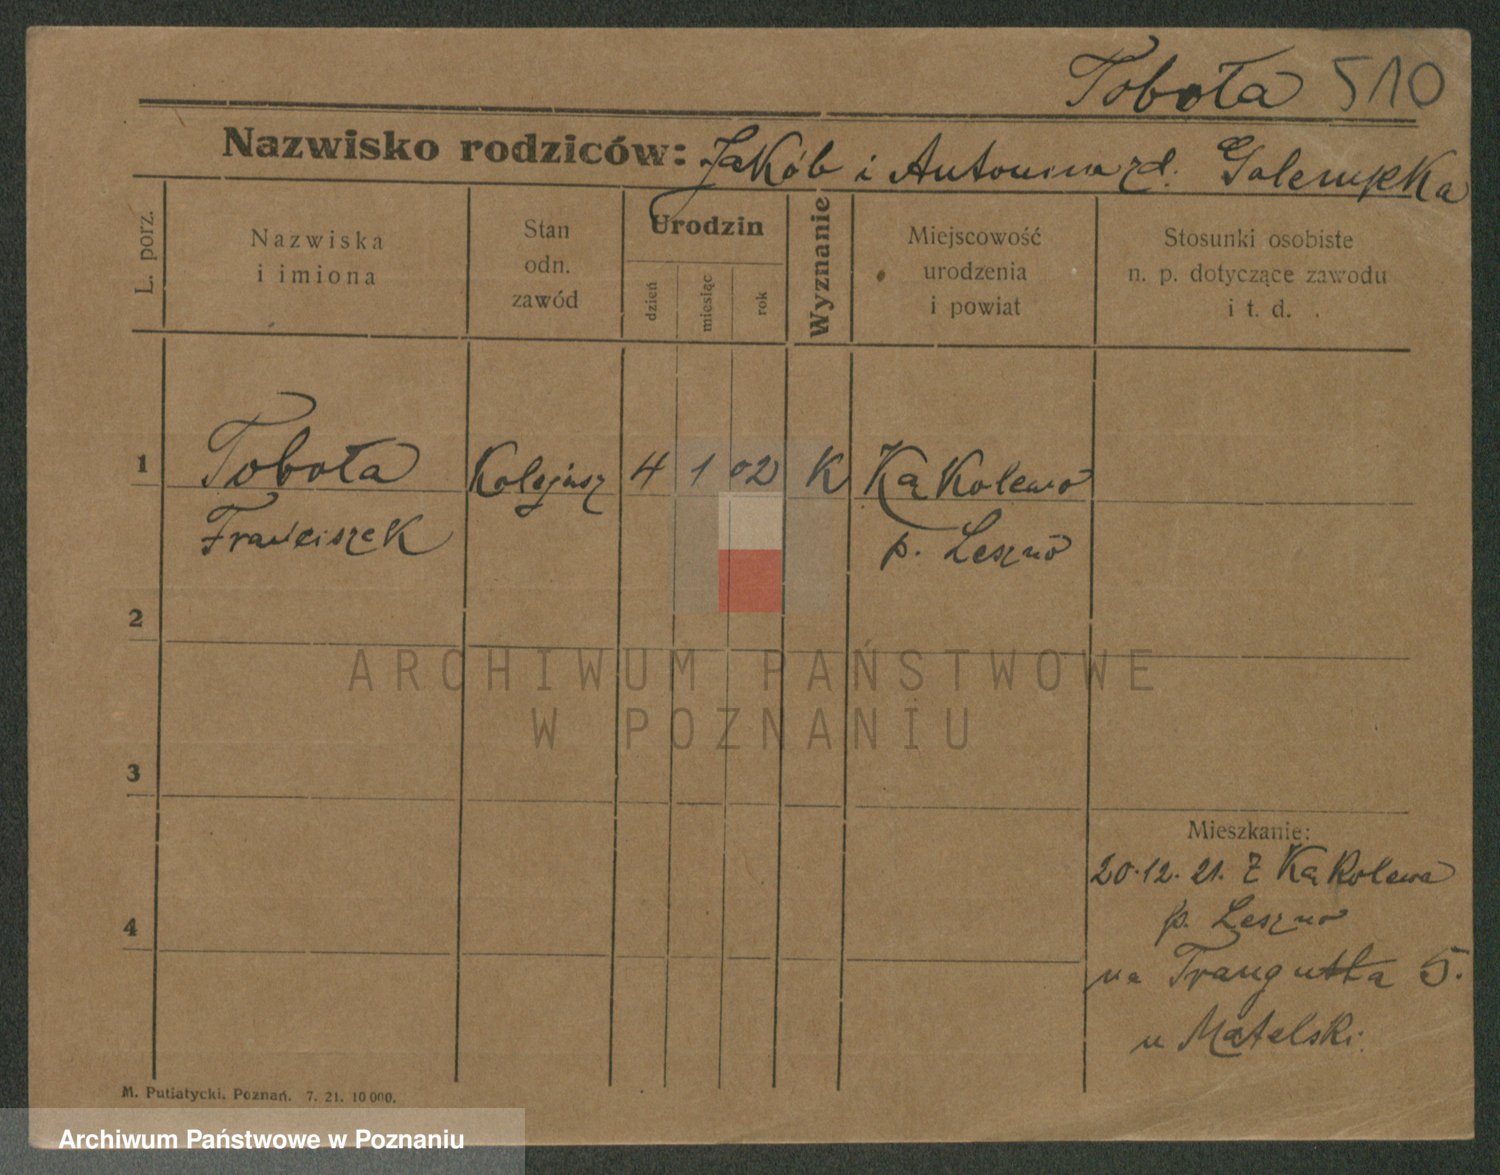 Toboła 510
Nazwisko rodziców: Jakób i Antonina zd.
L. porz.
Nazwiska
i imiona
Stan
odn.
zawód
Urodzin
dzień
miesiąc
rok
Wyznanie
Miejscowość
urodzenia
i powiat
Stosunki osobiste
n. p. dotyczące zawodu
i t. d.
1 Toboła Kolejasz 4 1 02 K Kąkolewo
Franciszek p. Leszno
2
3
4
Mieszkanie:
20.12.21. z Kąkolewa
p. Leszno
na Traugutta 5.
u Matelski.
M. Putiatycki, Poznań. 7. 21. 10 000.
ARCHIWUM PAŃSTWOWE
W POZNANIU
Archiwum Państwowe w Poznaniu